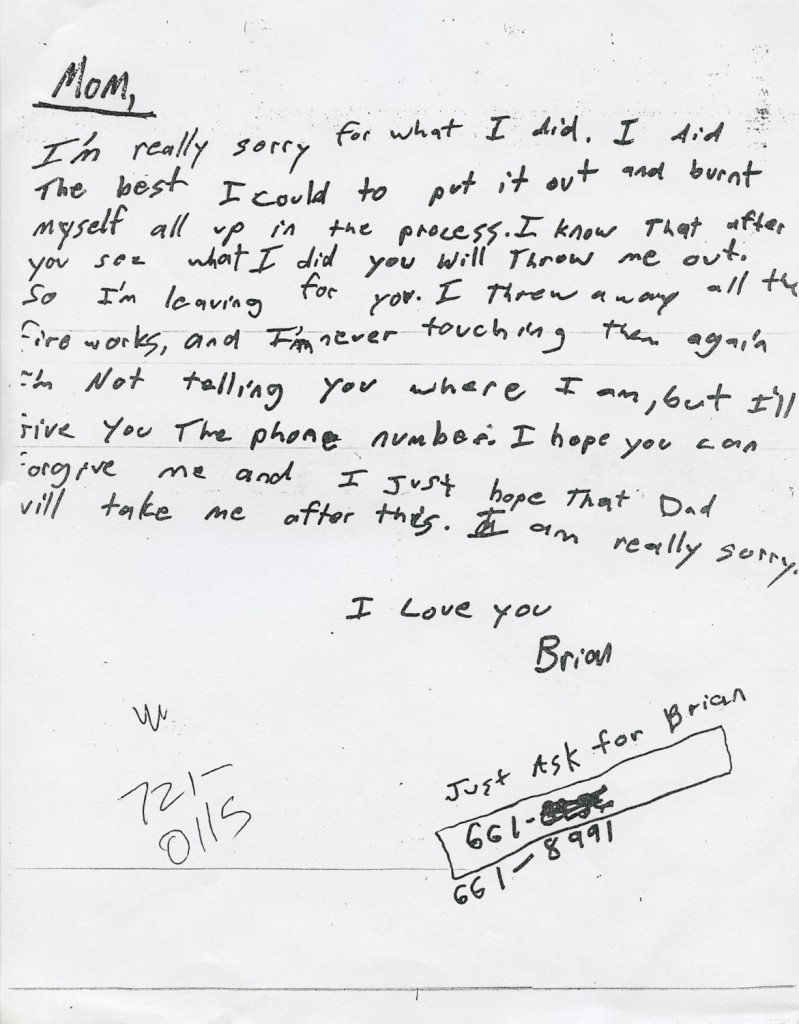 Mom,
I'm really sorry for what I did. I did
The best I could to put it out and burnt
myself all up in the process. I know That after
you see what I did you will Throw me out.
So I'm leaving for you. I Threw away all the
Fire works, and I'm never touching them again
I'm Not telling you where I am, but I'll
Give You The phone number. I hope you can
forgive me and I Just hope That Dad
will take me after this. I am really sorry.
I Love you
Brian
W
721-
0115
Just Ask for Brian
661-
661-8991